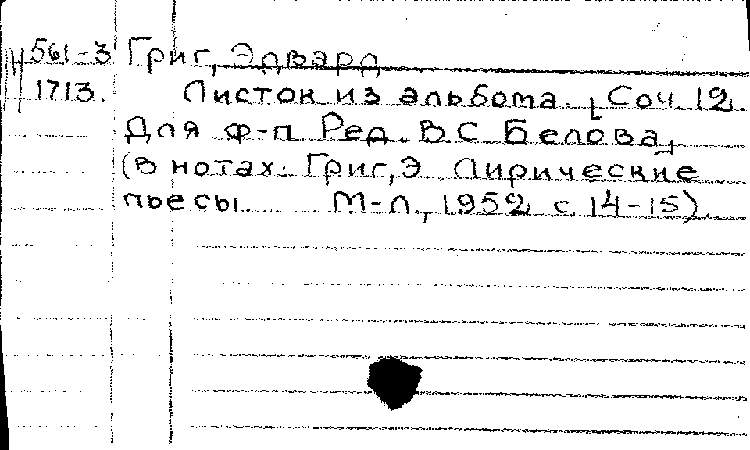 Н 561-3 Григ, Эдвард
1713. Листок из альбома. [Соч. 12.
Для ф-п. Ред. В.С. Белова]
(В нотах: Григ, Э. Лирические
пьесы. М-Л., 1952, с. 14-15).